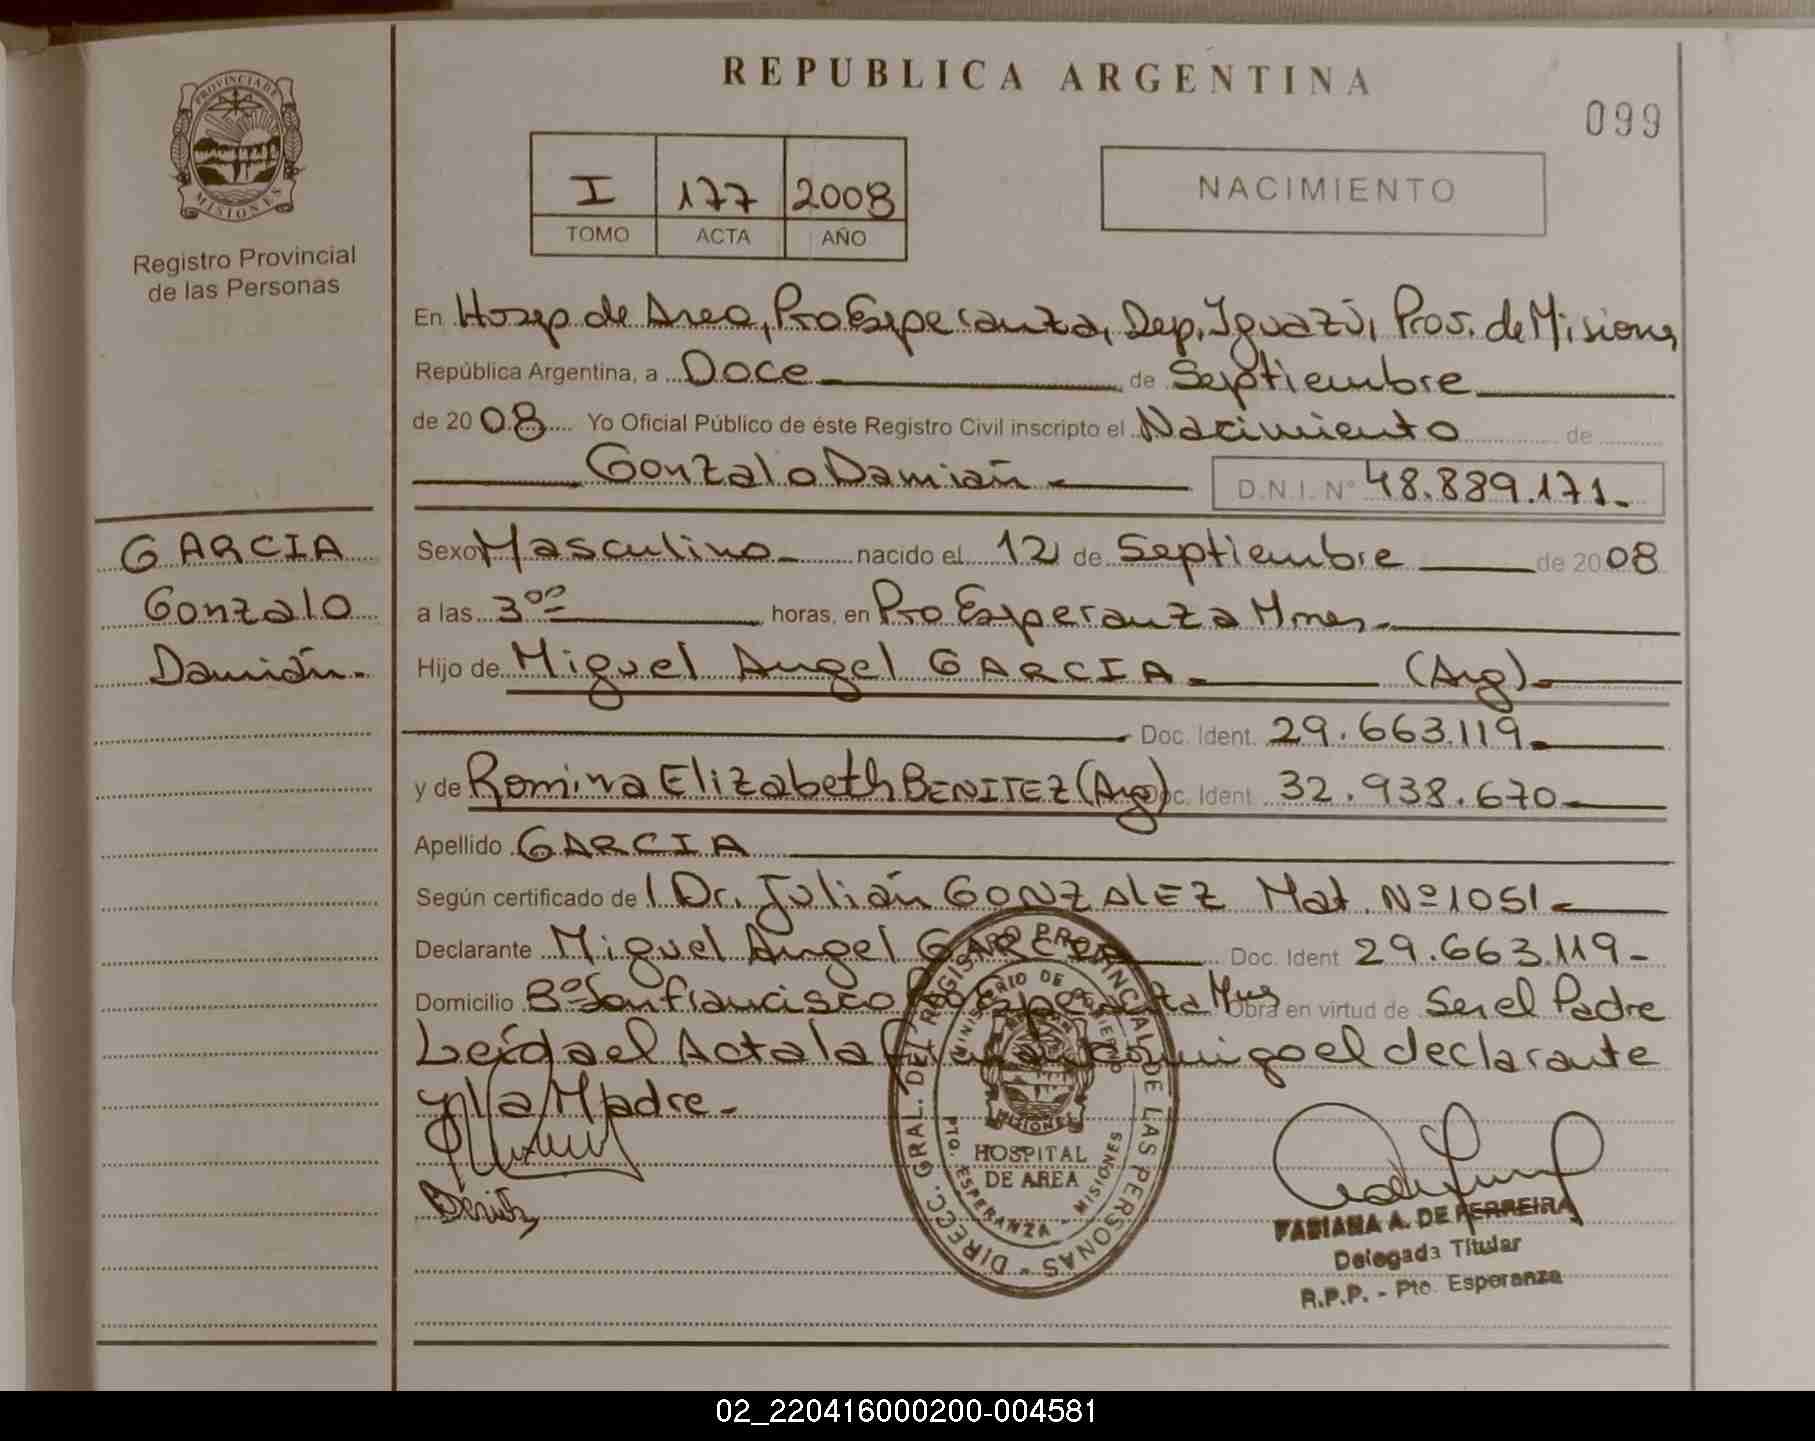 REPUBLICA ARGENTINA
099
PROVINCIA DE
MISIONES
Registro Provincial
de las Personas
I 177 2008
TOMO ACTA AÑO
NACIMIENTO
En Hosp de Area, Pto Esperanza, Dep. Iguazú, Prov. de Misiones
República Argentina, a Doce de Septiembre
de 2008 Yo Oficial Público de éste Registro Civil inscripto el Nacimiento de
Gonzalo Damián D.N.I. Nº 48.889.171.-
GARCIA
Gonzalo
Damián.-
Sexo Masculino.- nacido el 12 de Septiembre de 2008
a las 3⁰⁰ horas, en Pto Esperanza Mnes.-
Hijo de Miguel Angel GARCIA.- (Arg).-
Doc. Ident. 29.663.119.-
y de Romina Elizabeth BENITEZ (Arg) Doc. Ident. 32.938.670.-
Apellido GARCIA
Según certificado de l Dr. Julián GONZALEZ Mat. Nº 1051.-
Declarante Miguel Angel GARCIA Doc. Ident 29.663.119.-
Domicilio Bº San Francisco Pto Esperanza Mnes Obra en virtud de Ser el Padre
Leída el Acta la firman conmigo el declarante
y la Madre.-
Benitez
DIRECC. GRAL. DEL REGISTRO PROVINCIAL DE LAS PERSONAS -
MINISTERIO DE GOBIERNO
MISIONES
HOSPITAL
DE AREA
PTO. ESPERANZA - MISIONES
FABIANA A. DE FERREIRA
Delegada Titular
R.P.P. - Pto. Esperanza
02_220416000200-004581